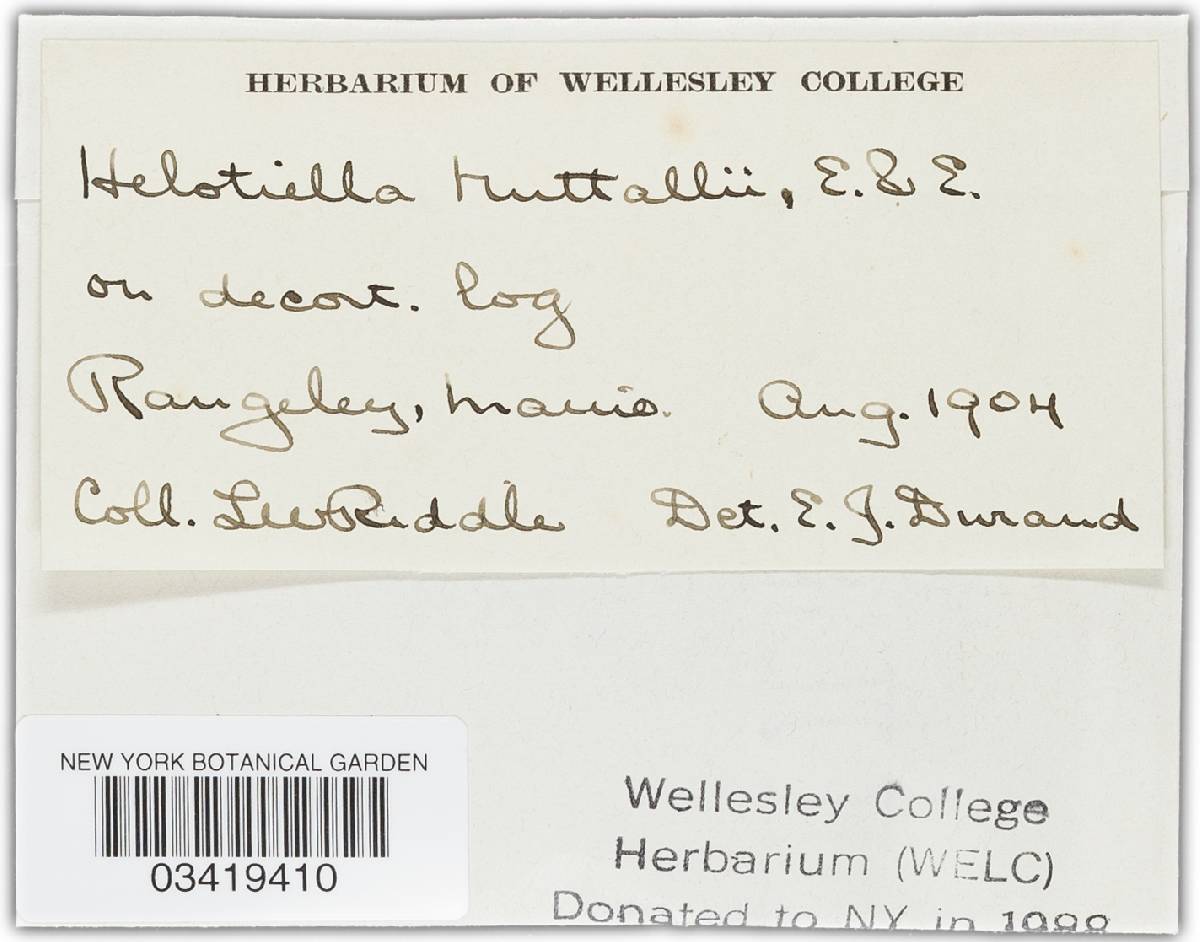 HERBARIUM OF WELLESLEY COLLEGE
Helotiella Nuttallii, E. & E.
on decort. log
Rangeley, Maine. Aug. 1904
Coll. LWRiddle Det. E. J. Durand
NEW YORK BOTANICAL GARDEN
03419410
Wellesley College
Herbarium (WELC)
Donated to NY in 1988